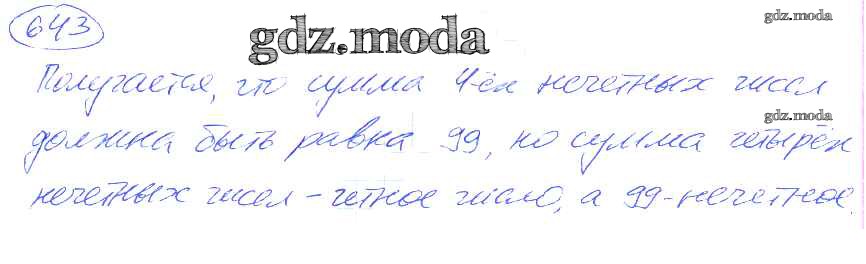 643
gdz.moda
gdz.moda
Получается, что сумма 4-ёх нечетных чисел
gdz.moda
должна быть равна 99, но сумма четырёх
нечетных чисел - четное число, а 99-нечетное.